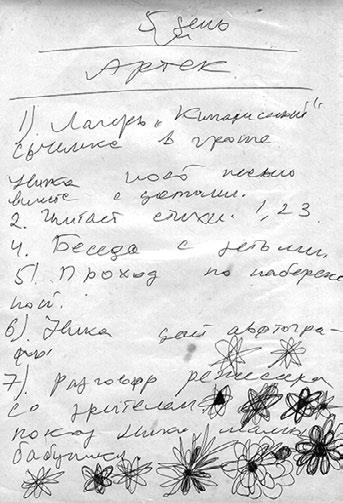 5 день
Артек
1) Лагерь „Кипарисный"
съемке в гроте
Ника поёт песню
вместе с детьми.
2. Читает стихи. 1, 2 3.
4. Беседа с детьми,
5) Проход по набереж
ной.
6) Ника даёт автогра-
фы
7) Разговор режиссера
со зрителем
показ Ника мамы
бабушки